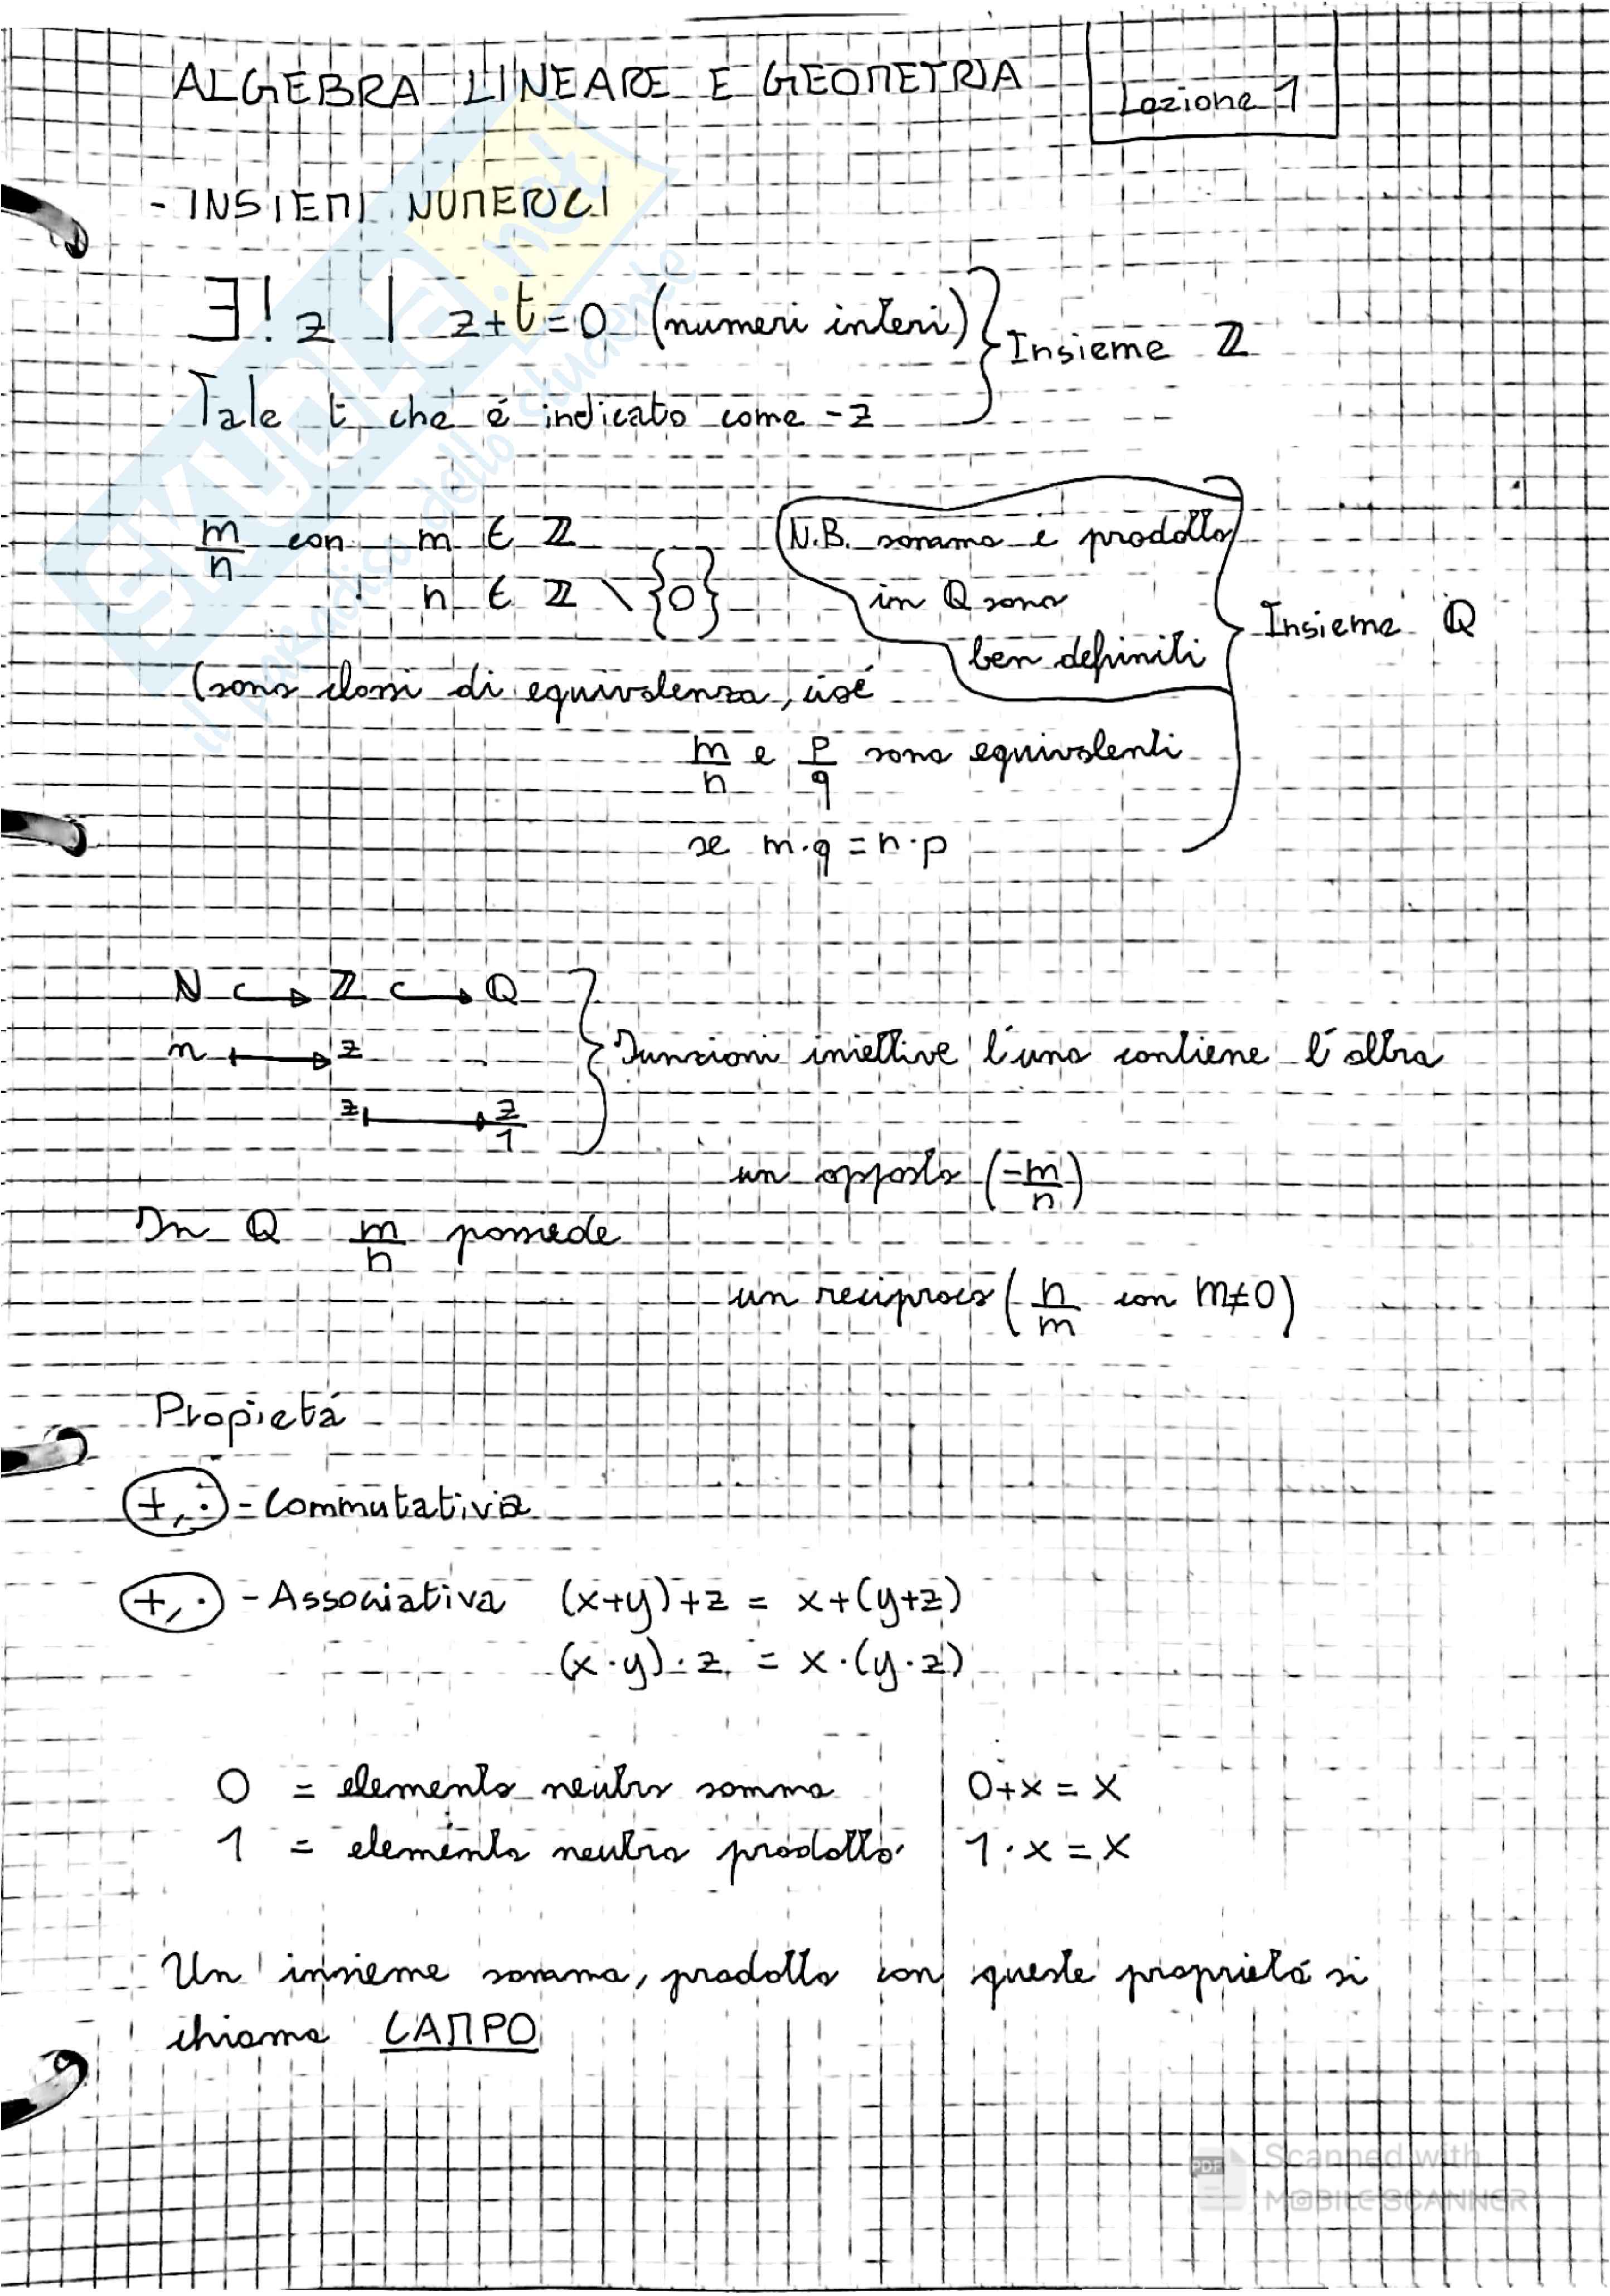 ALGEBRA LINEARE E GEOMETRIA
Lezione 1
- INSIEMI NUMERICI
∃! z | z+t=0 (numeri interi)
Tale t che é indicato come -z
Insieme ℤ
m/n con m ∈ ℤ
n ∈ ℤ \ {0}
N.B. somma e prodotto
in ℚ sono
ben definiti
Insieme ℚ
(sono classi di equivalenza, cioé
m/n e p/q sono equivalenti
se m·q = n·p
ℕ ↪ ℤ ↪ ℚ
n ↦ z
z ↦ z/1
Funzioni iniettive l'una contiene l'altra
un opposto (-m/n)
In ℚ m/n possiede
un reciproco (n/m con m≠0)
Propietá
+, · - Commutativa
+, · - Associativa (x+y)+z = x+(y+z)
(x·y)·z = x·(y·z)
0 = elemento neutro somma 0+x = x
1 = elemento neutro prodotto 1·x = x
Un insieme somma, prodotto con queste proprietá si
chiama CAMPO
SKUOLA.net
il paradiso dello studente
PDF
Scanned with
MOBILE SCANNER